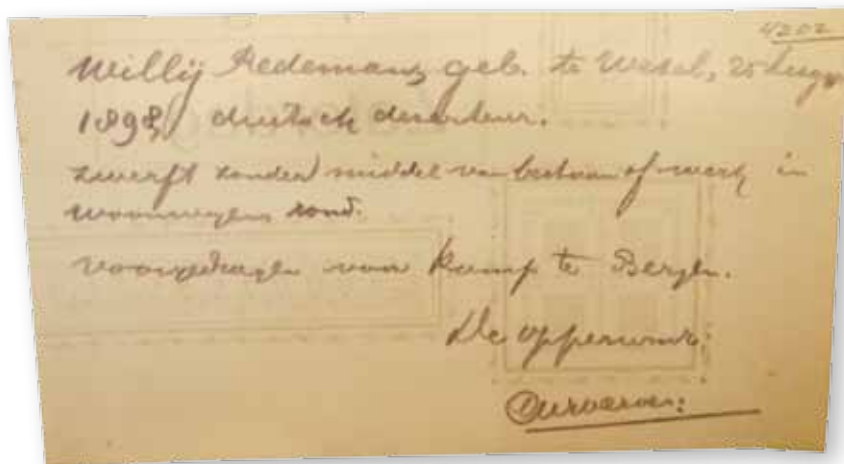 4202
Willij Redemans, geb. te Wesel, 25
1898, duitsch deserteur.
zwerft zonder middel van bestaan of werk in
woonwagens rond.
Voorgedragen voor Kamp te Bergen.
De opperwmr: